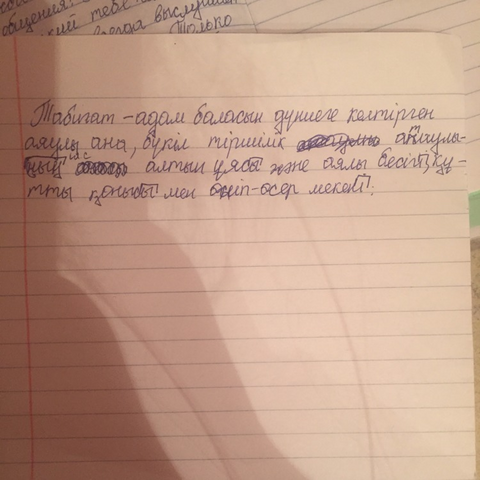 общения.
тебе
всегда выслушает
Только
Табиғат - адам баласын дүниеге келтірген
аяулы ана, бүкіл тіршілік
алтын ұясы және аялы бесігі, құ-
тты қонысы мен өніп-өсер мекені.